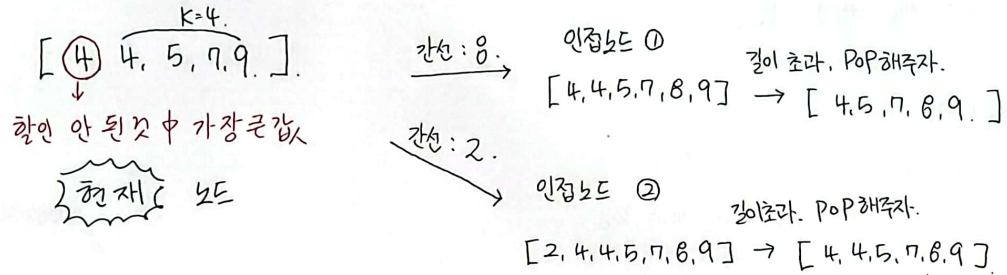 K=4.
[ 4 4, 5, 7, 9. ].
할인 안 된것 中 가장 큰 값
현재 노드
간선 : 8.
인접노드 ①
[4,4,5,7,8,9] → [ 4,5,7,8,9. ]
길이 초과, POP해주자.
간선 : 2.
인접노드 ②
길이초과. POP해주자.
[2,4,4,5,7,8,9] → [ 4,4,5,7,8,9 ]